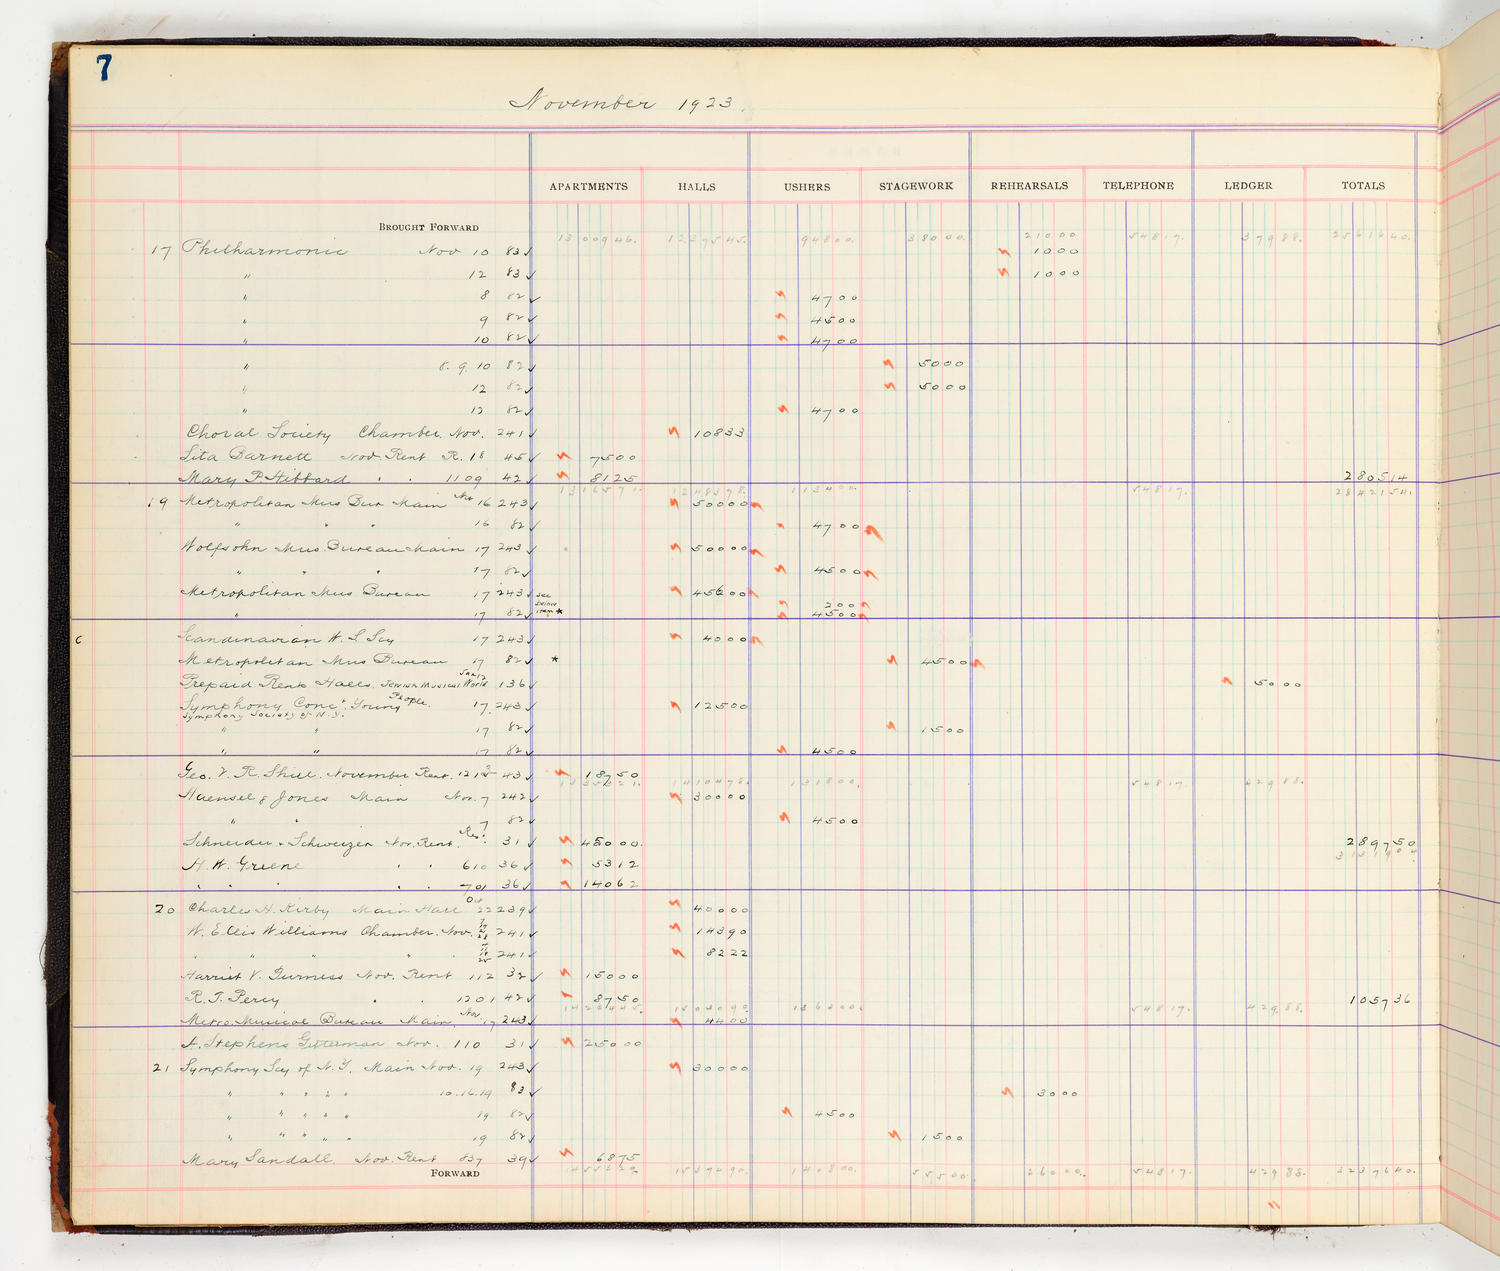 7
November 1923.
APARTMENTS HALLS USHERS STAGEWORK REHEARSALS TELEPHONE LEDGER TOTALS
BROUGHT FORWARD
1300946. 1237545. 94800. 38000. 21000. 54817. 37988. 2561640.
17 Philharmonic Nov 10 83 ✓ 1000
" 12 83 ✓ 1000
" 8 82 ✓ 4700
" 9 82 ✓ 4500
" 10 82 ✓ 4700
" 8. 9. 10 82 ✓ 5000
" 12 82 ✓ 5000
" 12 82 ✓ 4700
Choral Society Chamber. Nov. 241 ✓ 10833
Lita Barnett Nov. Rent R. 18 45 ✓ 7500
Mary P. Hibbard " " 1109 42 ✓ 8125 280514
1316571. 1248378. 113400. 54817. 2842154.
19 Metropolitan Mus Bur Main Nov 16 243 ✓ 50000
" " " 16 82 ✓ 4700
Wolfsohn Mus. Bureau Main 17 243 ✓ 50000
" " " 17 82 ✓ 4500
Metropolitan Mus Bureau 17 243 ✓ see below item * 45600
200
" 17 82 ✓ 4500
C Scandinavian A. S. Scy 17 243 ✓ 4000
Metropolitan Mus Bureau 17 82 ✓ * 4500
Prepaid Rents Halls. Jewish Musical World Jan 12 136 ✓ 5000
Symphony Conc't. Young People. 17. 243 ✓ 12500
Symphony Society of N.Y.
" " 17 82 ✓ 1500
" " 17 82 ✓ 4500
Geo. V. R. Shiel. November Rent. 43 ✓ 18750
1335321. 1410478. 131800. 54817 42988.
Haensel & Jones Main Nov. 7 242 ✓ 30000
" " 7 82 ✓ 4500
Schneider & Schweizer Nov. Rent. Res. 31 ✓ 45000 289750
H. W. Greene " " 610 36 ✓ 5312
" " " " 701 36 ✓ 14062
20 Charles H. Kirby Main Hall Oct 22 239 ✓ 40000
W. Ellis Williams Chamber. Nov. 241 ✓ 14390
" " " " " 241 ✓ 8222
Harriet V. Furness Nov. Rent 112 32 ✓ 15000
R. T. Percy " " 1201 42 ✓ 8750 105736
1423445. 1503090. 136300. 54817. 42988.
Metro. Musical Bureau Main. Nov. 17 243 ✓ 4400
A. Stephens Guterman Nov. 110 31 ✓ 25000
21 Symphony Scy of N.Y. Main Nov. 19 243 ✓ 30000
" " " " " 10.16.19 83 ✓ 3000
" " " " " 19 82 ✓ 4500
" " " " " 19 82 ✓ 1500
Mary Sandall. Nov. Rent 837 39 ✓ 6875
FORWARD 1455320. 1539490. 140800. 55500. 26000. 54817. 42988. 3237640.